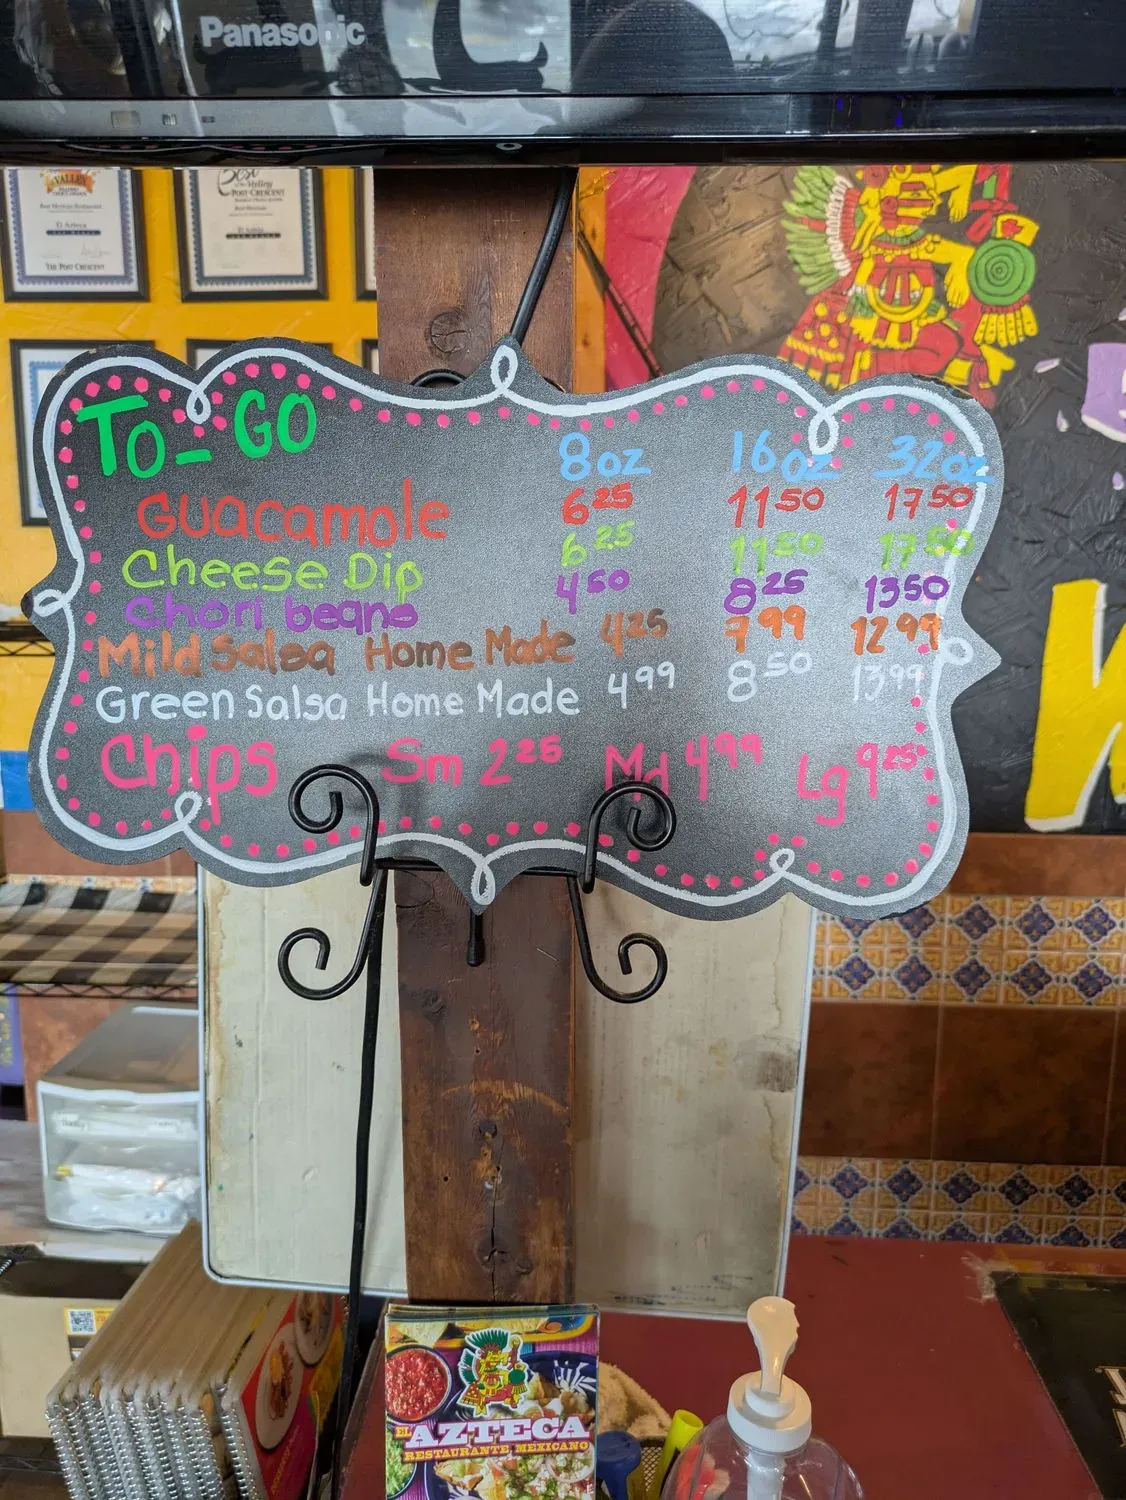 Panasonic
VALLEY
Best Mexican Restaurant
El Azteca
THE POST CRESCENT
Best
of the Valley
POST-CRESCENT
Best Mexican
El Azteca
TO-GO 8oz 16oz 32oz
Guacamole 6 25 11 50 17 50
Cheese Dip 6 25 11 50 17 50
Chori beans 4 50 8 25 13 50
Mild Salsa Home Made 4 25 7 99 12 99
Green Salsa Home Made 4 99 8 50 13 99
Chips Sm 2 25 Md 4 99 Lg 9 25
EL AZTECA
RESTAURANTE MEXICANO